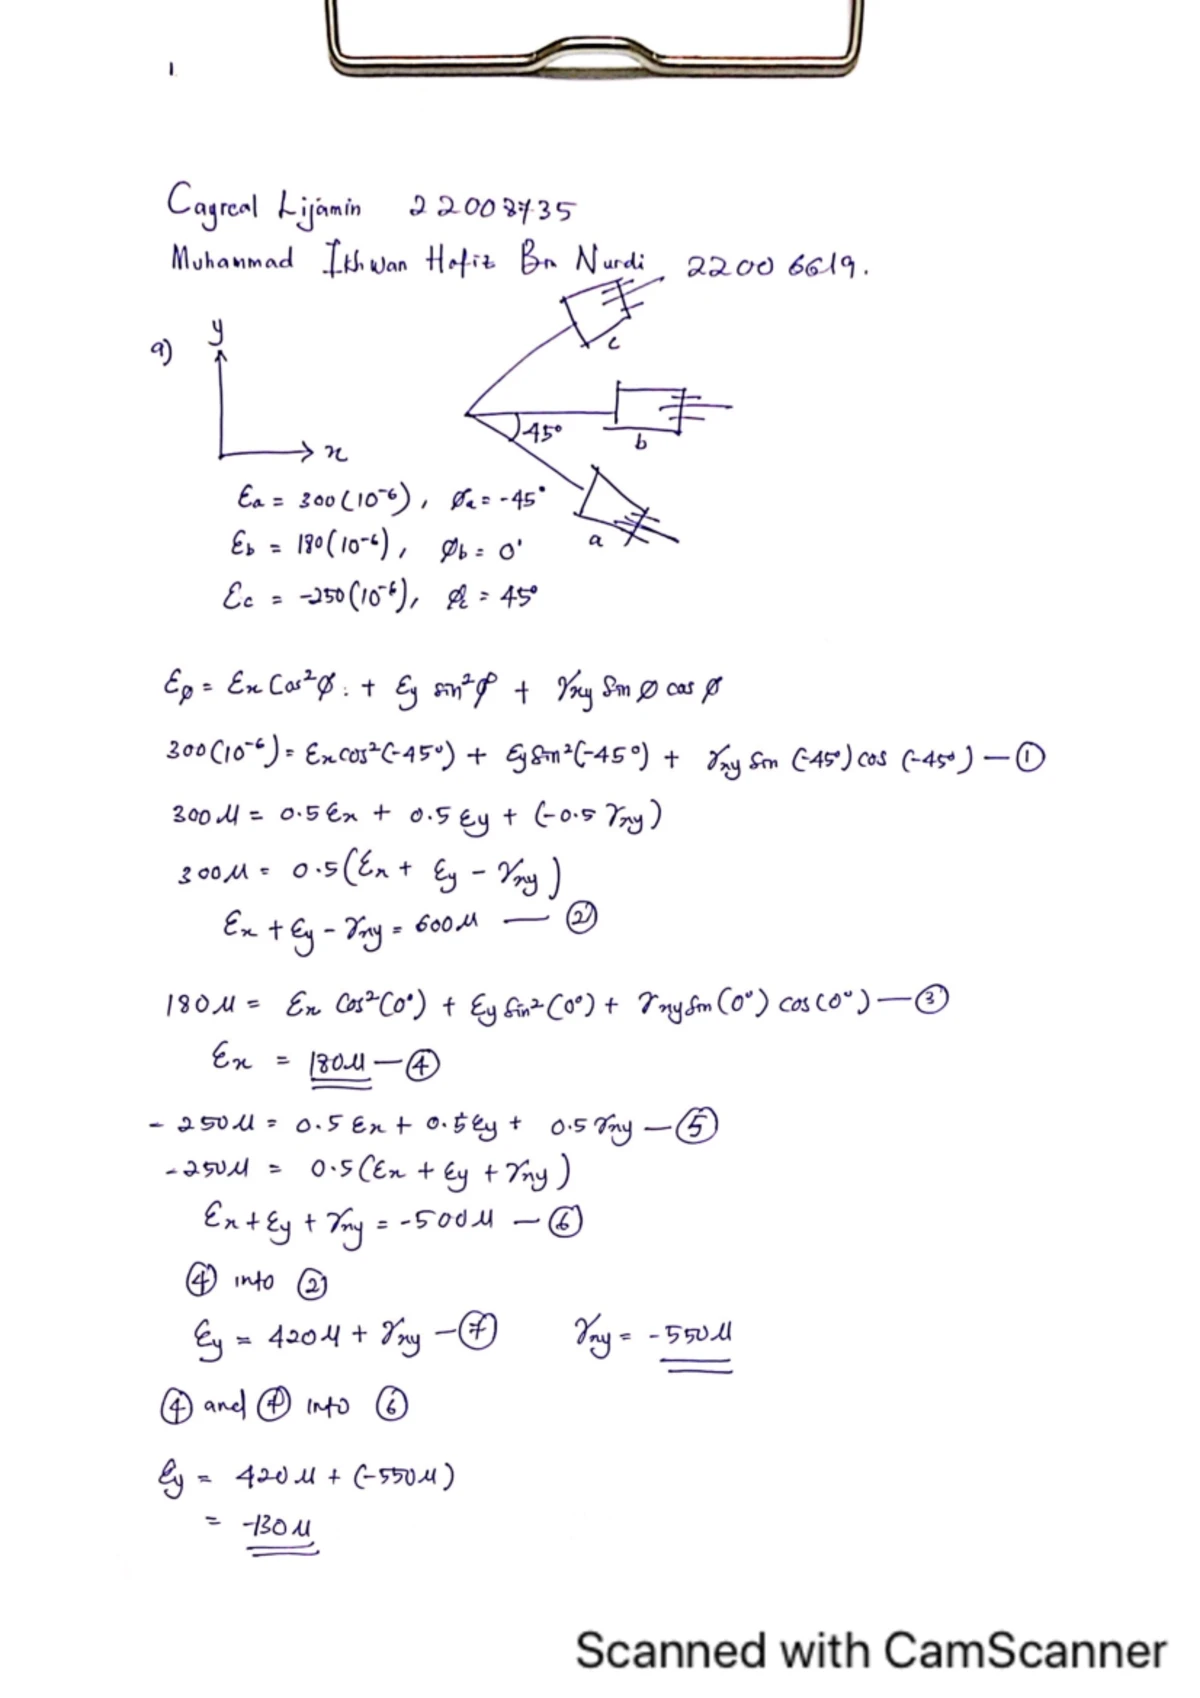 1
Cagreal Lijamin 22008735
Muhammad Ikhwan Hafiz Bn Nurdi 22006619.
a) y
c
45°
x
b
a
εa = 300(10⁻⁶), Øa = -45°
εb = 180(10⁻⁶), Øb = 0°
εc = -250(10⁻⁶), Øc = 45°
εø = εx Cos²Ø + εy sin²Ø + γxy Sin Ø cos Ø
300(10⁻⁶) = εx cos²(-45°) + εy Sin²(-45°) + γxy Sin (-45°) cos (-45°) — ①
300μ = 0.5 εx + 0.5 εy + (-0.5 γxy)
300μ = 0.5(εx + εy - γxy)
εx + εy - γxy = 600μ — ②
180μ = εx Cos²(0°) + εy Sin²(0°) + γxy Sin(0°) cos(0°) — ③
εx = 180μ — ④
-250μ = 0.5 εx + 0.5 εy + 0.5 γxy — ⑤
-250μ = 0.5(εx + εy + γxy)
εx + εy + γxy = -500μ — ⑥
④ into ②
εy = 420μ + γxy — ⑦ γxy = -550μ
④ and ⑦ into ⑥
εy = 420μ + (-550μ)
= -130μ
Scanned with CamScanner